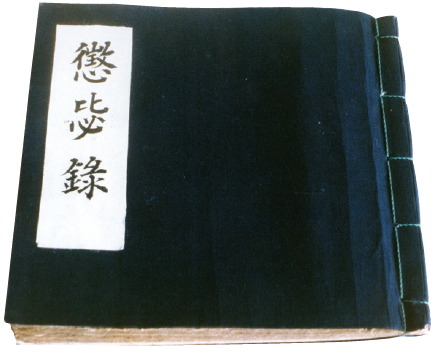 懲毖錄